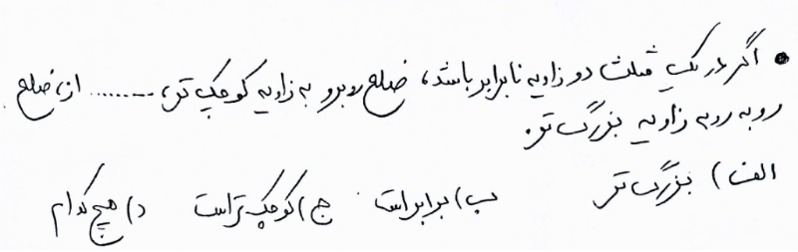 • اگر در یک مثلث دو زاویه نابرابر باشد، ضلع روبرو به زاویه کوچک تر، ........ از ضلع
روبه روبه زاویه بزرگ تر.
الف) بزرگ تر ب) برابر است ج) کوچک تر است د) هیچ کدام